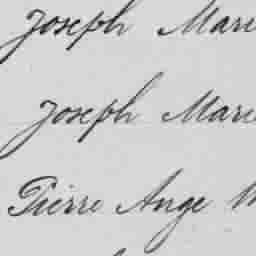 Joseph Marie
Joseph Marie
Pierre Ange